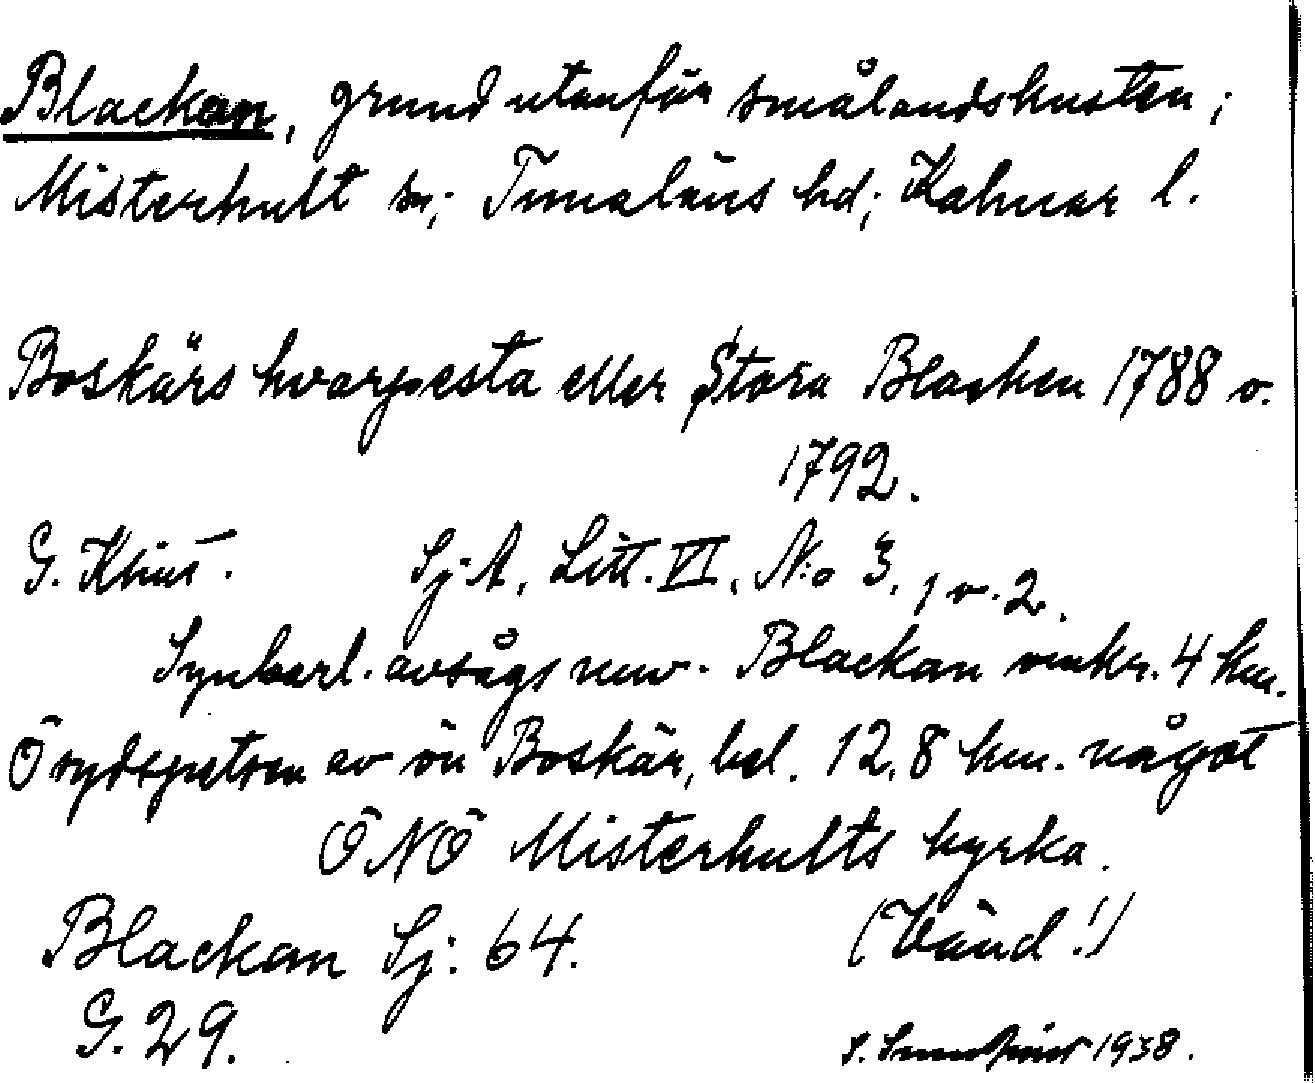 Blackan, grund utanför smålandskusten;
Misterhult sn; Tunaläns hd; Kalmar l.
Boskärs hvarpesta eller Stora Blacken 1788 o.
1792.
G. Klint. Sj. A, Litt. VI, N:o 3, 1 o. 2.
Synbarl. avságs nuv. Blackan omkr. 4 km.
Ö sydspetsen av ön Boskär, bel. 12,8 km. något
ÖNÖ Misterhults kyrka.
Blackan Sj: 64. (Vänd!)
G. 29.
S. 1938.